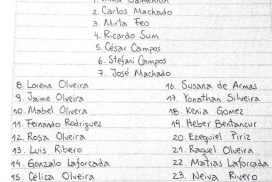 2. Carlos Machado
3. Mirta Feo
4. Ricardo Sum
5. César Campos
6. Stefani Campos
7. José Machado
8. Lorena Olveira
9. Jaime Olveira
10. Mabel Olvera
11. Fernando Rodriguez
12. Rosa Olveira
13. Luis Ribero
14. Gonzalo Laforcada
15. Célica Olveira
16. Susana de Armas
17. Yonathan Silveira
18. Kenia Gomez
19. Heber Bentancur
20. Ezequiel Piriz
21. Raquel Olveira
22. Matias Laforcada
23. Neiva Rivero